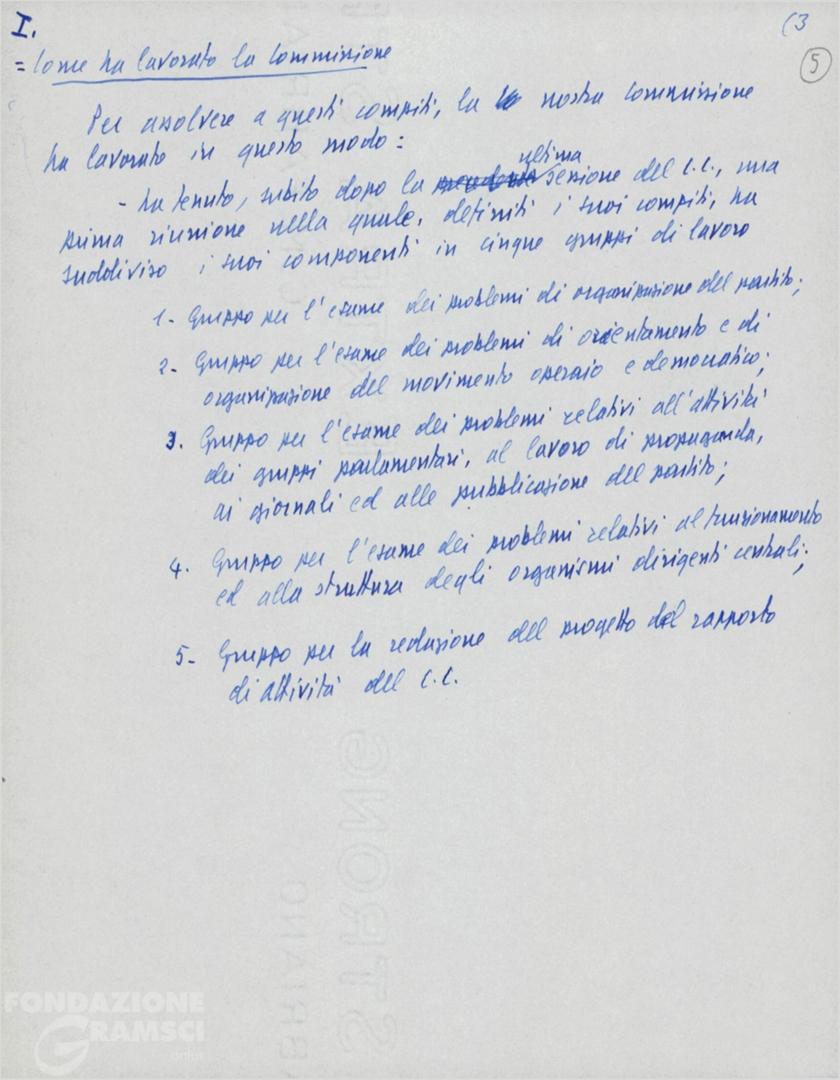 I.
(3
5
= Come ha lavorato la Commissione
Per assolvere a questi compiti, la nostra Commissione
ha lavorato in questo modo:
- ha tenuto, subito dopo la ultima sessione del C.C., una
prima riunione nella quale, definiti i suoi compiti, ha
suddiviso i suoi componenti in cinque gruppi di lavoro
1- Gruppo per l'esame dei problemi di organizzazione del partito;
2- Gruppo per l'esame dei problemi di orientamento e di
organizzazione del movimento operaio e democratico;
3. Gruppo per l'esame dei problemi relativi all'attività
dei gruppi parlamentari, al lavoro di propaganda,
ai giornali ed alle pubblicazione del partito;
4. Gruppo per l'esame dei problemi relativi al funzionamento
ed alla struttura degli organismi dirigenti centrali;
5- Gruppo per la redazione del progetto del rapporto
di attività del C.C.
STRONG
BRIANO
FONDAZIONE
GRAMSCI
onlus